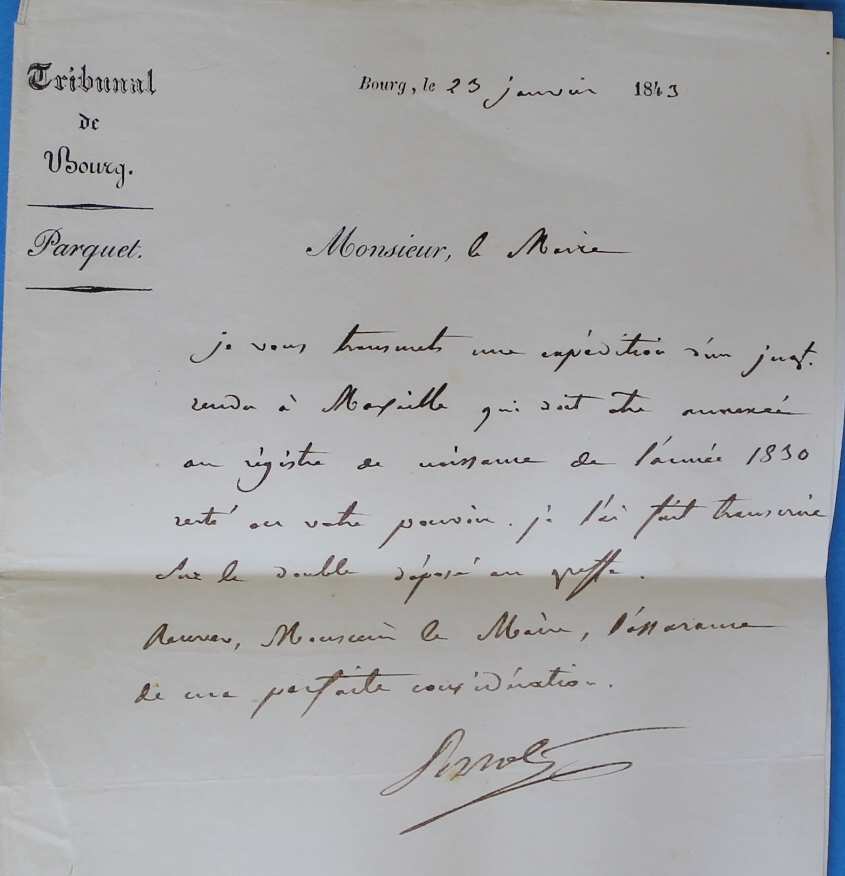 Tribunal
de
Bourg.
Parquet.
Bourg, le 23 janvier 1843
Monsieur, le Maire
je vous transmets une expédition d'un jugt.
rendu à qui doit être annexée
au régistre de naissance de l'année 1830
resté en votre pouvoir. je l'ai fait transcrire
sur le double déposé au greffe.
Recevez, Monsieur le Maire, l'assurance
de ma parfaite considération.